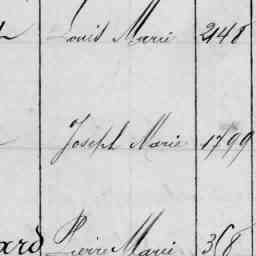 Louis Marie 2148
Joseph Marie 1799
ard Pierre Marie 358